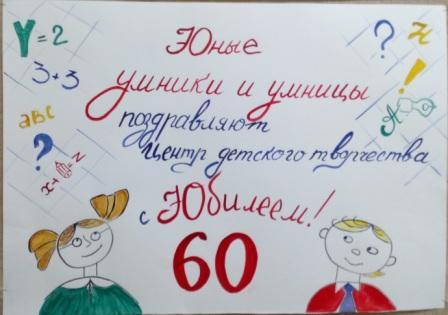 Y=2
3+3
авс
?
x+=z
? Н
!
А
Юные
умники и умницы
поздравляют
центр детского творчества
с Юбилеем!
60